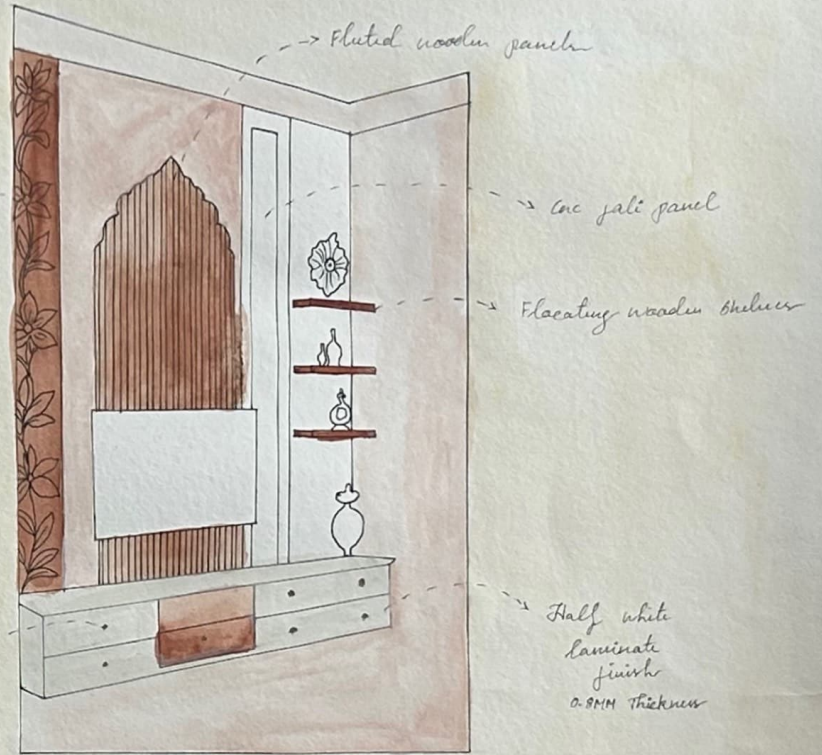 Fluted wooden panels
CNC jali panel
Floating wooden shelves
Half white
laminate
finish
0.8MM Thickness